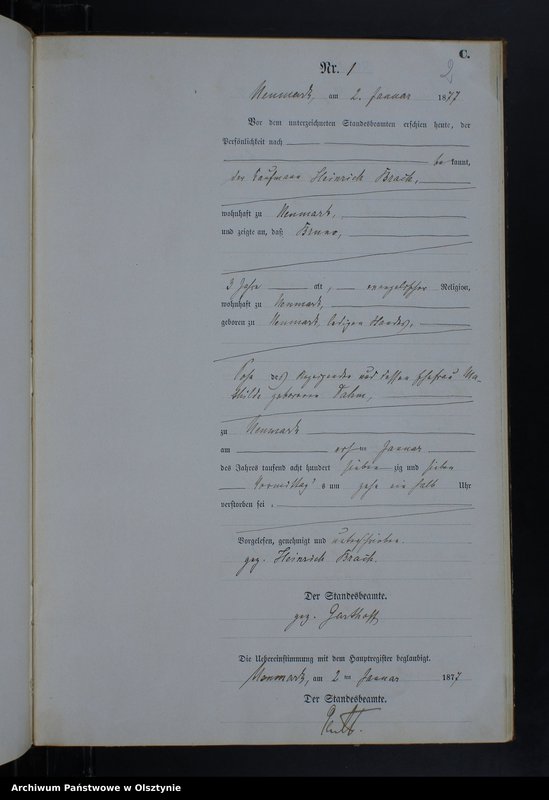 C.
Nr. 1
Neumark, am 2. Januar 1877
Vor dem unterzeichneten Standesbeamten erschien heute, der
Persönlichkeit nach
be kannt,
der Kaufmann Heinrich Brach,
wohnhaft zu Neumark,
und zeigte an, daß Bruno,
3 Jahre alt, evangelischer Religion,
wohnhaft zu Neumark,
geboren zu Neumark, ledigen Standes,
Sohn des Anzeigenden und dessen Ehefrau Ma-
thilde geborene
zu Neumark
am ersten Januar
des Jahres tausend acht hundert sieben zig und sieben
Vormittags um zehn ein halb Uhr
verstorben sei.
Vorgelesen, genehmigt und unterschrieben.
gez. Heinrich Brach.
Der Standesbeamte.
gez.
Die Uebereinstimmung mit dem Hauptregister beglaubigt.
Neumark, am 2 ten Januar 1877
Der Standesbeamte.
Archiwum Państwowe w Olsztynie